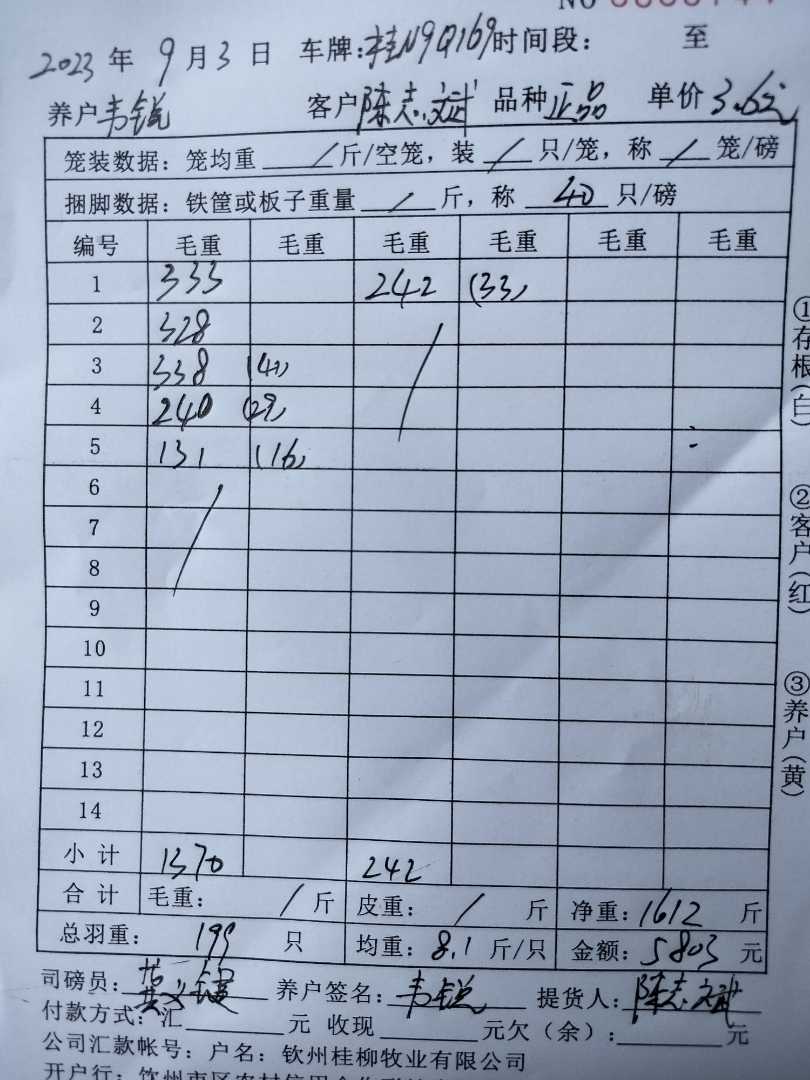 NO
2023 年 9 月 3 日 车牌:桂N9Q169 时间段: 至
养户 韦锐 客户 陈志斌 品种 正品 单价 3.6元
笼装数据: 笼均重 / 斤/空笼, 装 / 只/笼, 称 / 笼/磅
捆脚数据: 铁筐或板子重量 / 斤, 称 40 只/磅
编号 毛重 毛重 毛重 毛重 毛重 毛重
1 333 242 (33)
2 328
3 338 (41)
4 240 (29)
5 131 (16)
6
7
8
9
10
11
12
13
14
小 计 1370 242
合 计 毛重: / 斤 皮重: / 斤 净重: 1612 斤
总羽重: 199 只 均重: 8.1 斤/只 金额: 5803 元
司磅员: 养户签名: 韦锐 提货人: 陈志斌
付款方式: 汇 元 收现 元欠(余): 元
公司汇款帐号: 户名: 钦州桂柳牧业有限公司
开户行:
①存根(白)
②客户(红)
③养户(黄)